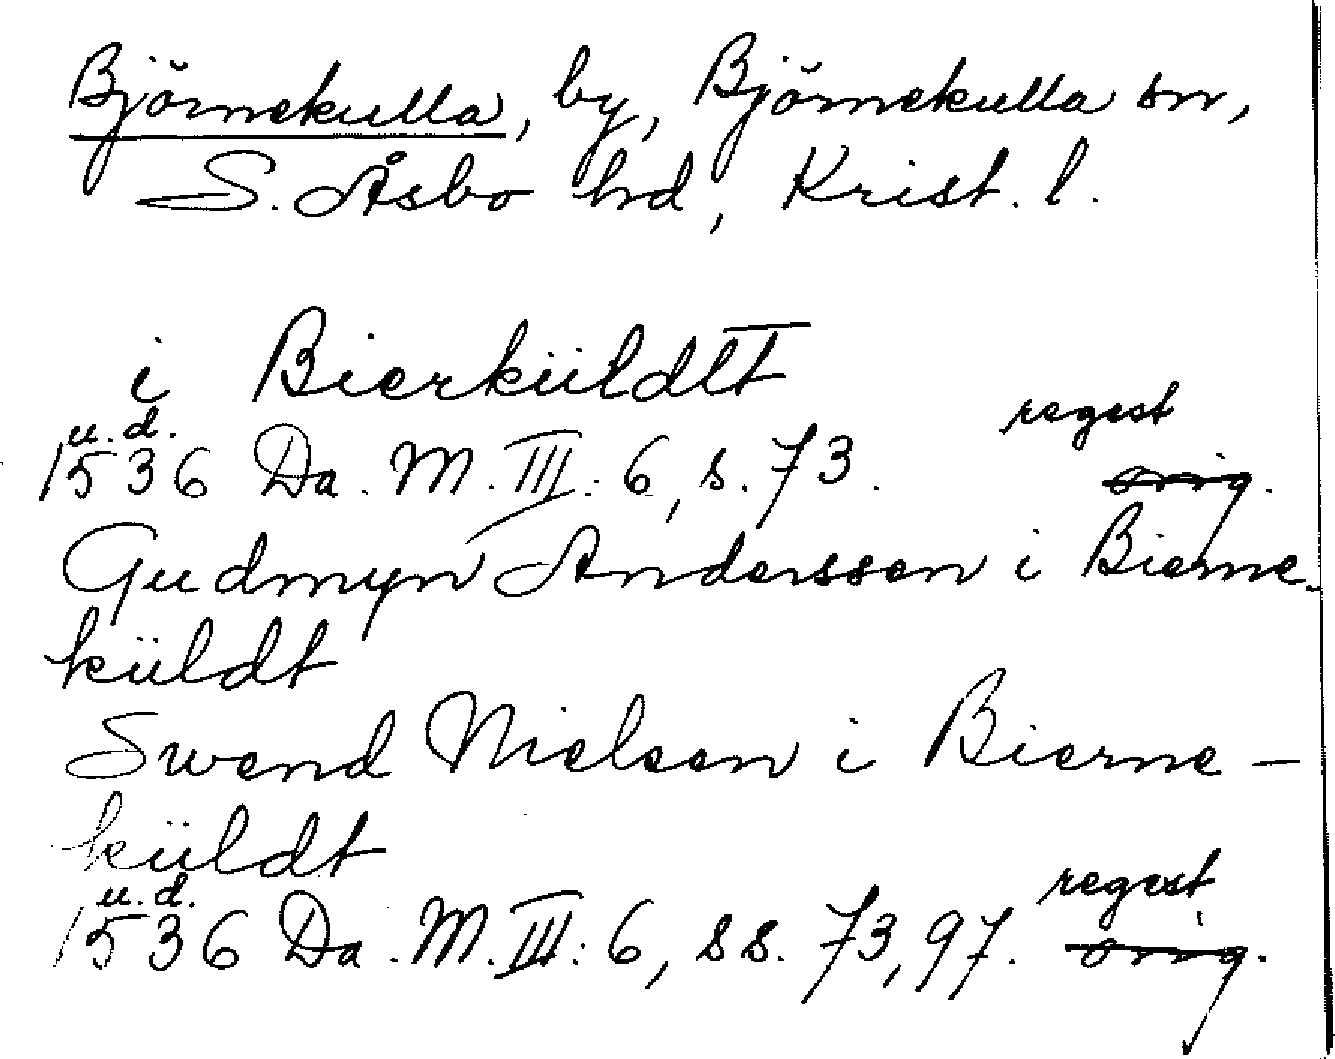 Björnekulla, by, Björnekulla sn,
S. Åsbo hd, Krist. l.
i Bierküldtt
u. d. regest
1536 Da. M. III: 6, s. 73. orig.
Gudmyn Anderssen i Bierne-
küldt
Swend Nielsen i Bierne-
küldt
u. d. regest
1536 Da. M. III: 6, ss. 73, 97. orig.